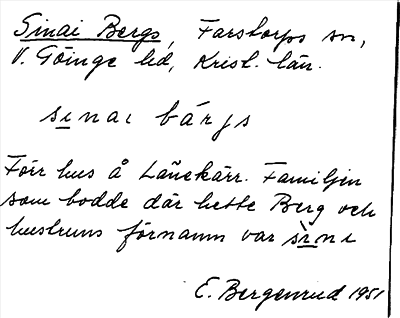 Sinai Bergs, Farstorps sn,
V. Göinge hd, Krist. län.
sinaı bärjs
Förr hus å Lånekärr. Familjen
som bodde där hette Berg och
hustruns förnamn var sìnı
E. Bergenrud 1951